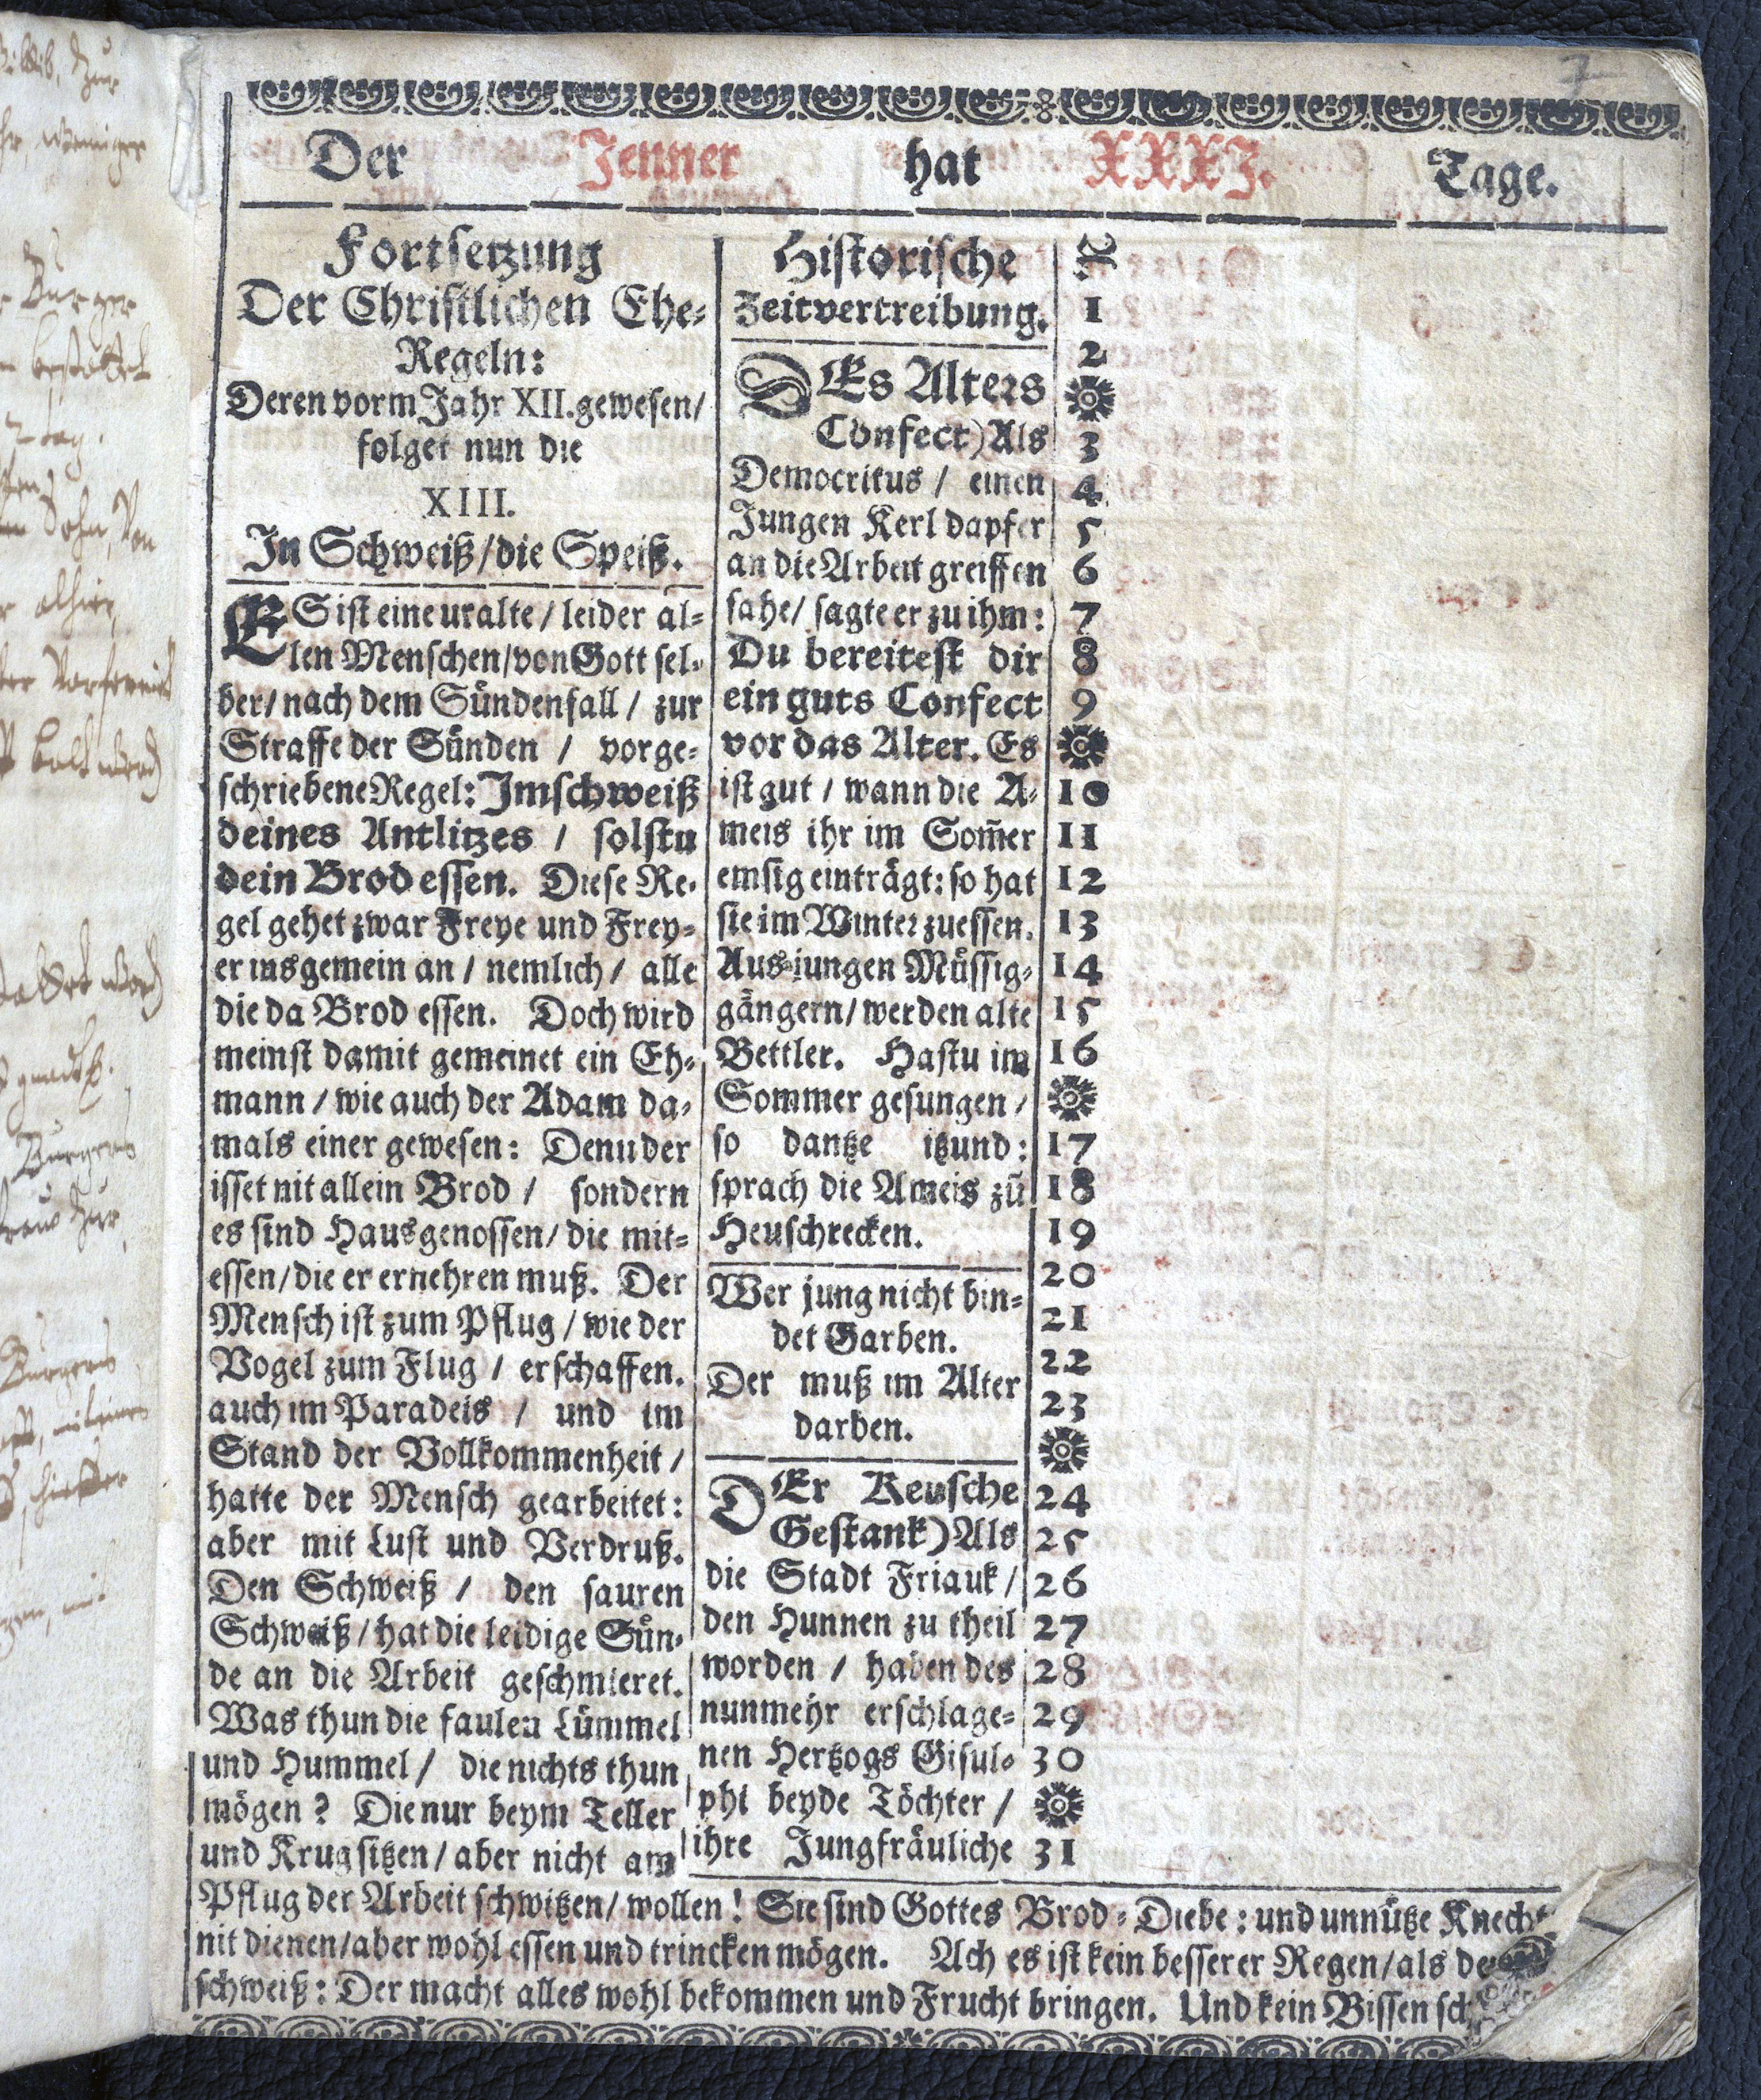 7
Der Jenner hat XXXI. Tage.
Fortsetzung
Der Christlichen Ehe-
Regeln:
Deren vorm Jahr XII. gewesen/
folget nun die
XIII.
In Schweiß/die Speiß.
ES ist eine uralte / leider al-
len Menschen/von Gott sel-
ber/ nach dem Sündenfall / zur
Straffe der Sünden / vorge-
schriebene Regel: Im schweiß
deines Antlitzes / solstu
dein Brod essen. Diese Re-
gel gehet zwar Freye und Frey-
er insgemein an / nemlich / alle
die da Brod essen. Doch wird
meinst damit gemeinet ein Eh-
mann / wie auch der Adam da-
mals einer gewesen: Denn der
isset nit allein Brod / sondern
es sind Hausgenossen/ die mit-
essen/die er ernehren muß. Der
Mensch ist zum Pflug / wie der
Vogel zum Flug / erschaffen.
auch im Paradeis / und im
Stand der Vollkommenheit /
hatte der Mensch gearbeitet:
aber mit Lust und Verdruß.
Den Schweiß / den sauren
Schweiß / hat die leidige Sün-
de an die Arbeit geschmieret.
Was thun die faulen Lümmel
und Hummel / die nichts thun
mögen ? Die nur beym Teller
und Krug sitzen / aber nicht am
Historische
Zeitvertreibung.
DEs Alters
Confect) Als
Democritus / einen
Jungen Kerl dapfer
an die Arbeit greiffen
sahe/ sagte er zu ihm:
Du bereitest dir
ein guts Confect
vor das Alter. Es
ist gut / wann die A-
meis ihr im Som̄er
emsig einträgt: so hat
sie im Winter zuessen.
Aus jungen Müssig-
gängern/ werden alte
Bettler. Hastu im
Sommer gesungen /
so dantze itzund:
sprach die Ameis zū
Heuschrecken.
Wer jung nicht bin-
det Garben.
Der muß im Alter
darben.
DEr Keusche
Gestank) Als
die Stadt Friauk /
den Hunnen zu theil
worden / haben des
nunmehr erschlage-
nen Hertzogs Gisul-
phi beyde Töchter /
ihre Jungfräuliche
1
2
3
4
5
6
7
8
9
10
11
12
13
14
15
16
17
18
19
20
21
22
23
24
25
26
27
28
29
30
31
Pflug der Arbeit schwitzen/ wollen ! Sie sind Gottes Brod-Diebe : und unnütze Knecht
nit dienen/aber wohl essen und trincken mögen. Ach es ist kein besserer Regen/als de
schweiß: Der macht alles wohl bekommen und Frucht bringen. Und kein Bissen sch